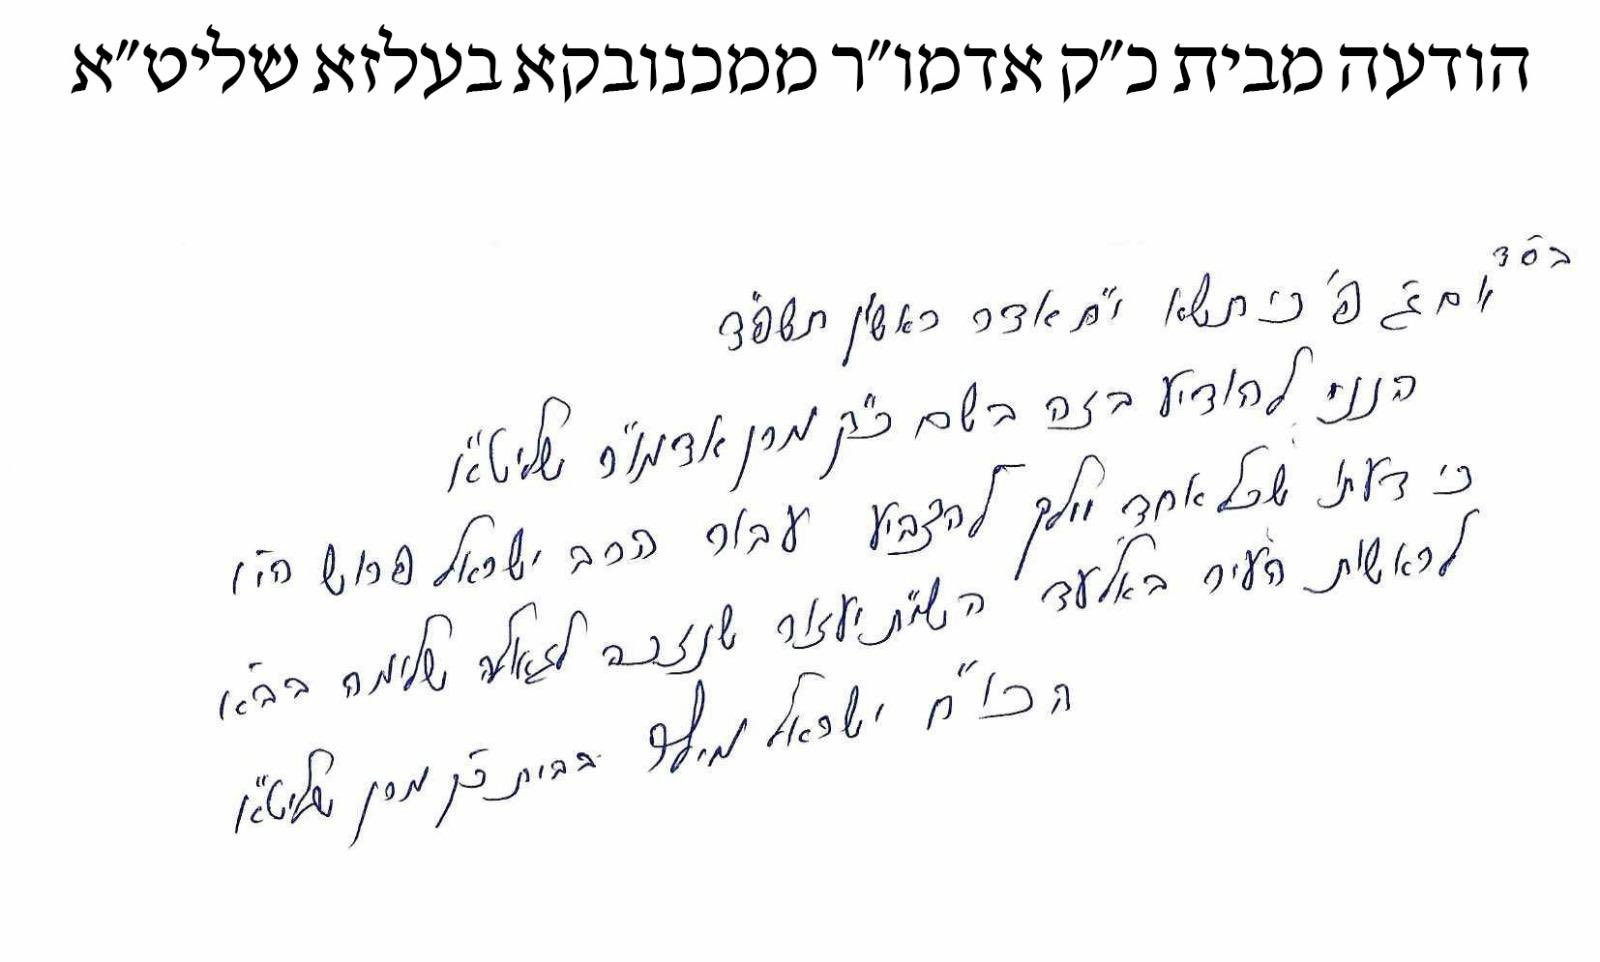 הודעה מבית כ"ק אדמו"ר ממכנובקא בעלזא שליט"א
בס"ד
יום ג' פ' כי תשא י"ח אדר ראשון תשפ"ד
הנני להודיע בזה בשם כ"ק מרן אדמו"ר שליט"א
כי דעתו שכל אחד ילך להצביע עבור הרב ישראל פרוש הי"ו
לראשות העיר באלעד השי"ת יעזור שנזכה לגאולה שלימה בב"א
הכו"ח ישראל בבית כ"ק מרן שליט"א